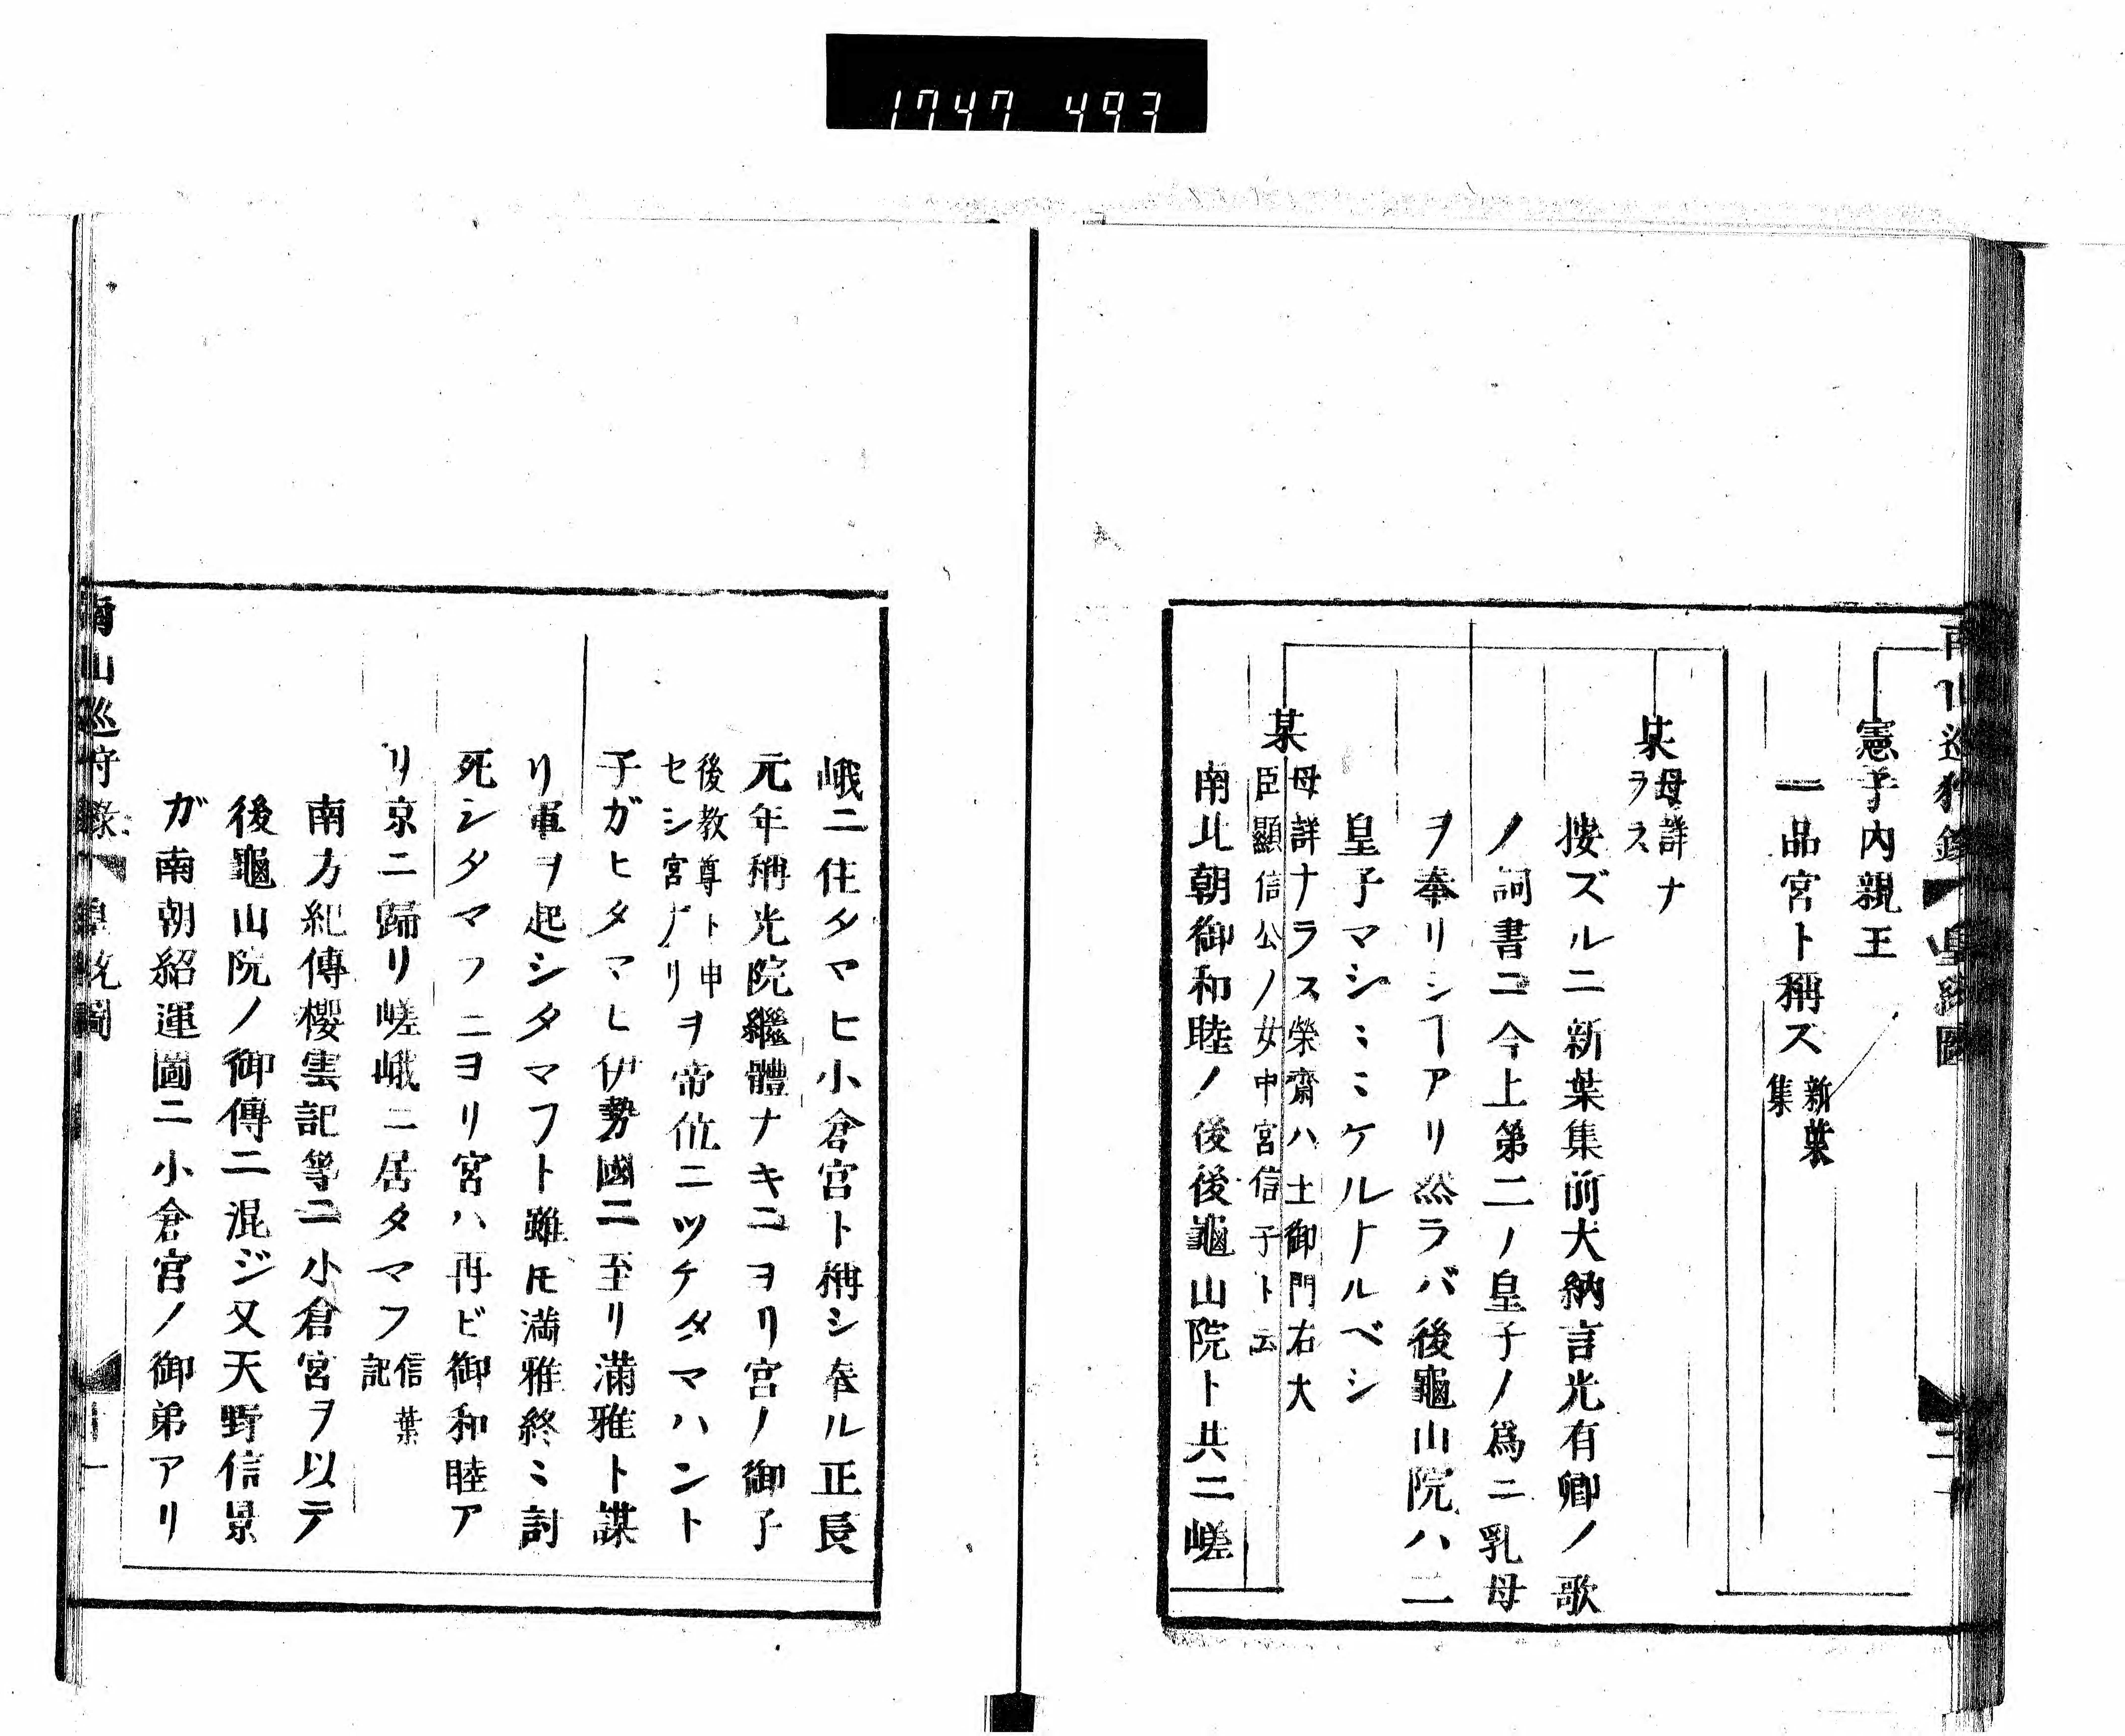 1747 493
南山巡狩録 皇統圖 二
憲子内親王
一品宮ト稱ス
新葉
集
某
母詳ナ
ラス
按ズルニ新葉集前大納言光有卿ノ歌
ノ詞書ニ今上第二ノ皇子ノ爲ニ乳母
ヲ奉リシヿアリ然ラバ後龜山院ハ二
皇子マシミミケルナルベシ
某
母詳ナラス榮齋ハ土御門右大
臣顯信公ノ女中宮信子ト云
南北朝御和睦ノ後後龜山院ト共ニ嵯
峨ニ住タマヒ小倉宮ト稱シ奉ル正長
元年稱光院繼體ナキニヨリ宮ノ御子
後教尊ト申
セシ宮ナリ
ヲ帝位ニツケタマハント
子ガヒタマヒ伊勢國ニ至リ滿雅ト謀
リ軍ヲ起シタマフト雖𪜈満雅終ミ討
死シタマフニヨリ宮ハ再ビ御和睦ア
リ京ニ歸リ嵯峨ニ居タマフ
信葉
記
南方紀傳櫻雲記等ニ小倉宮ヲ以テ
後龜山院ノ御傳ニ混ジ又天野信景
ガ南朝紹運圖ニ小倉宮ノ御弟アリ
南山巡狩録 皇統圖